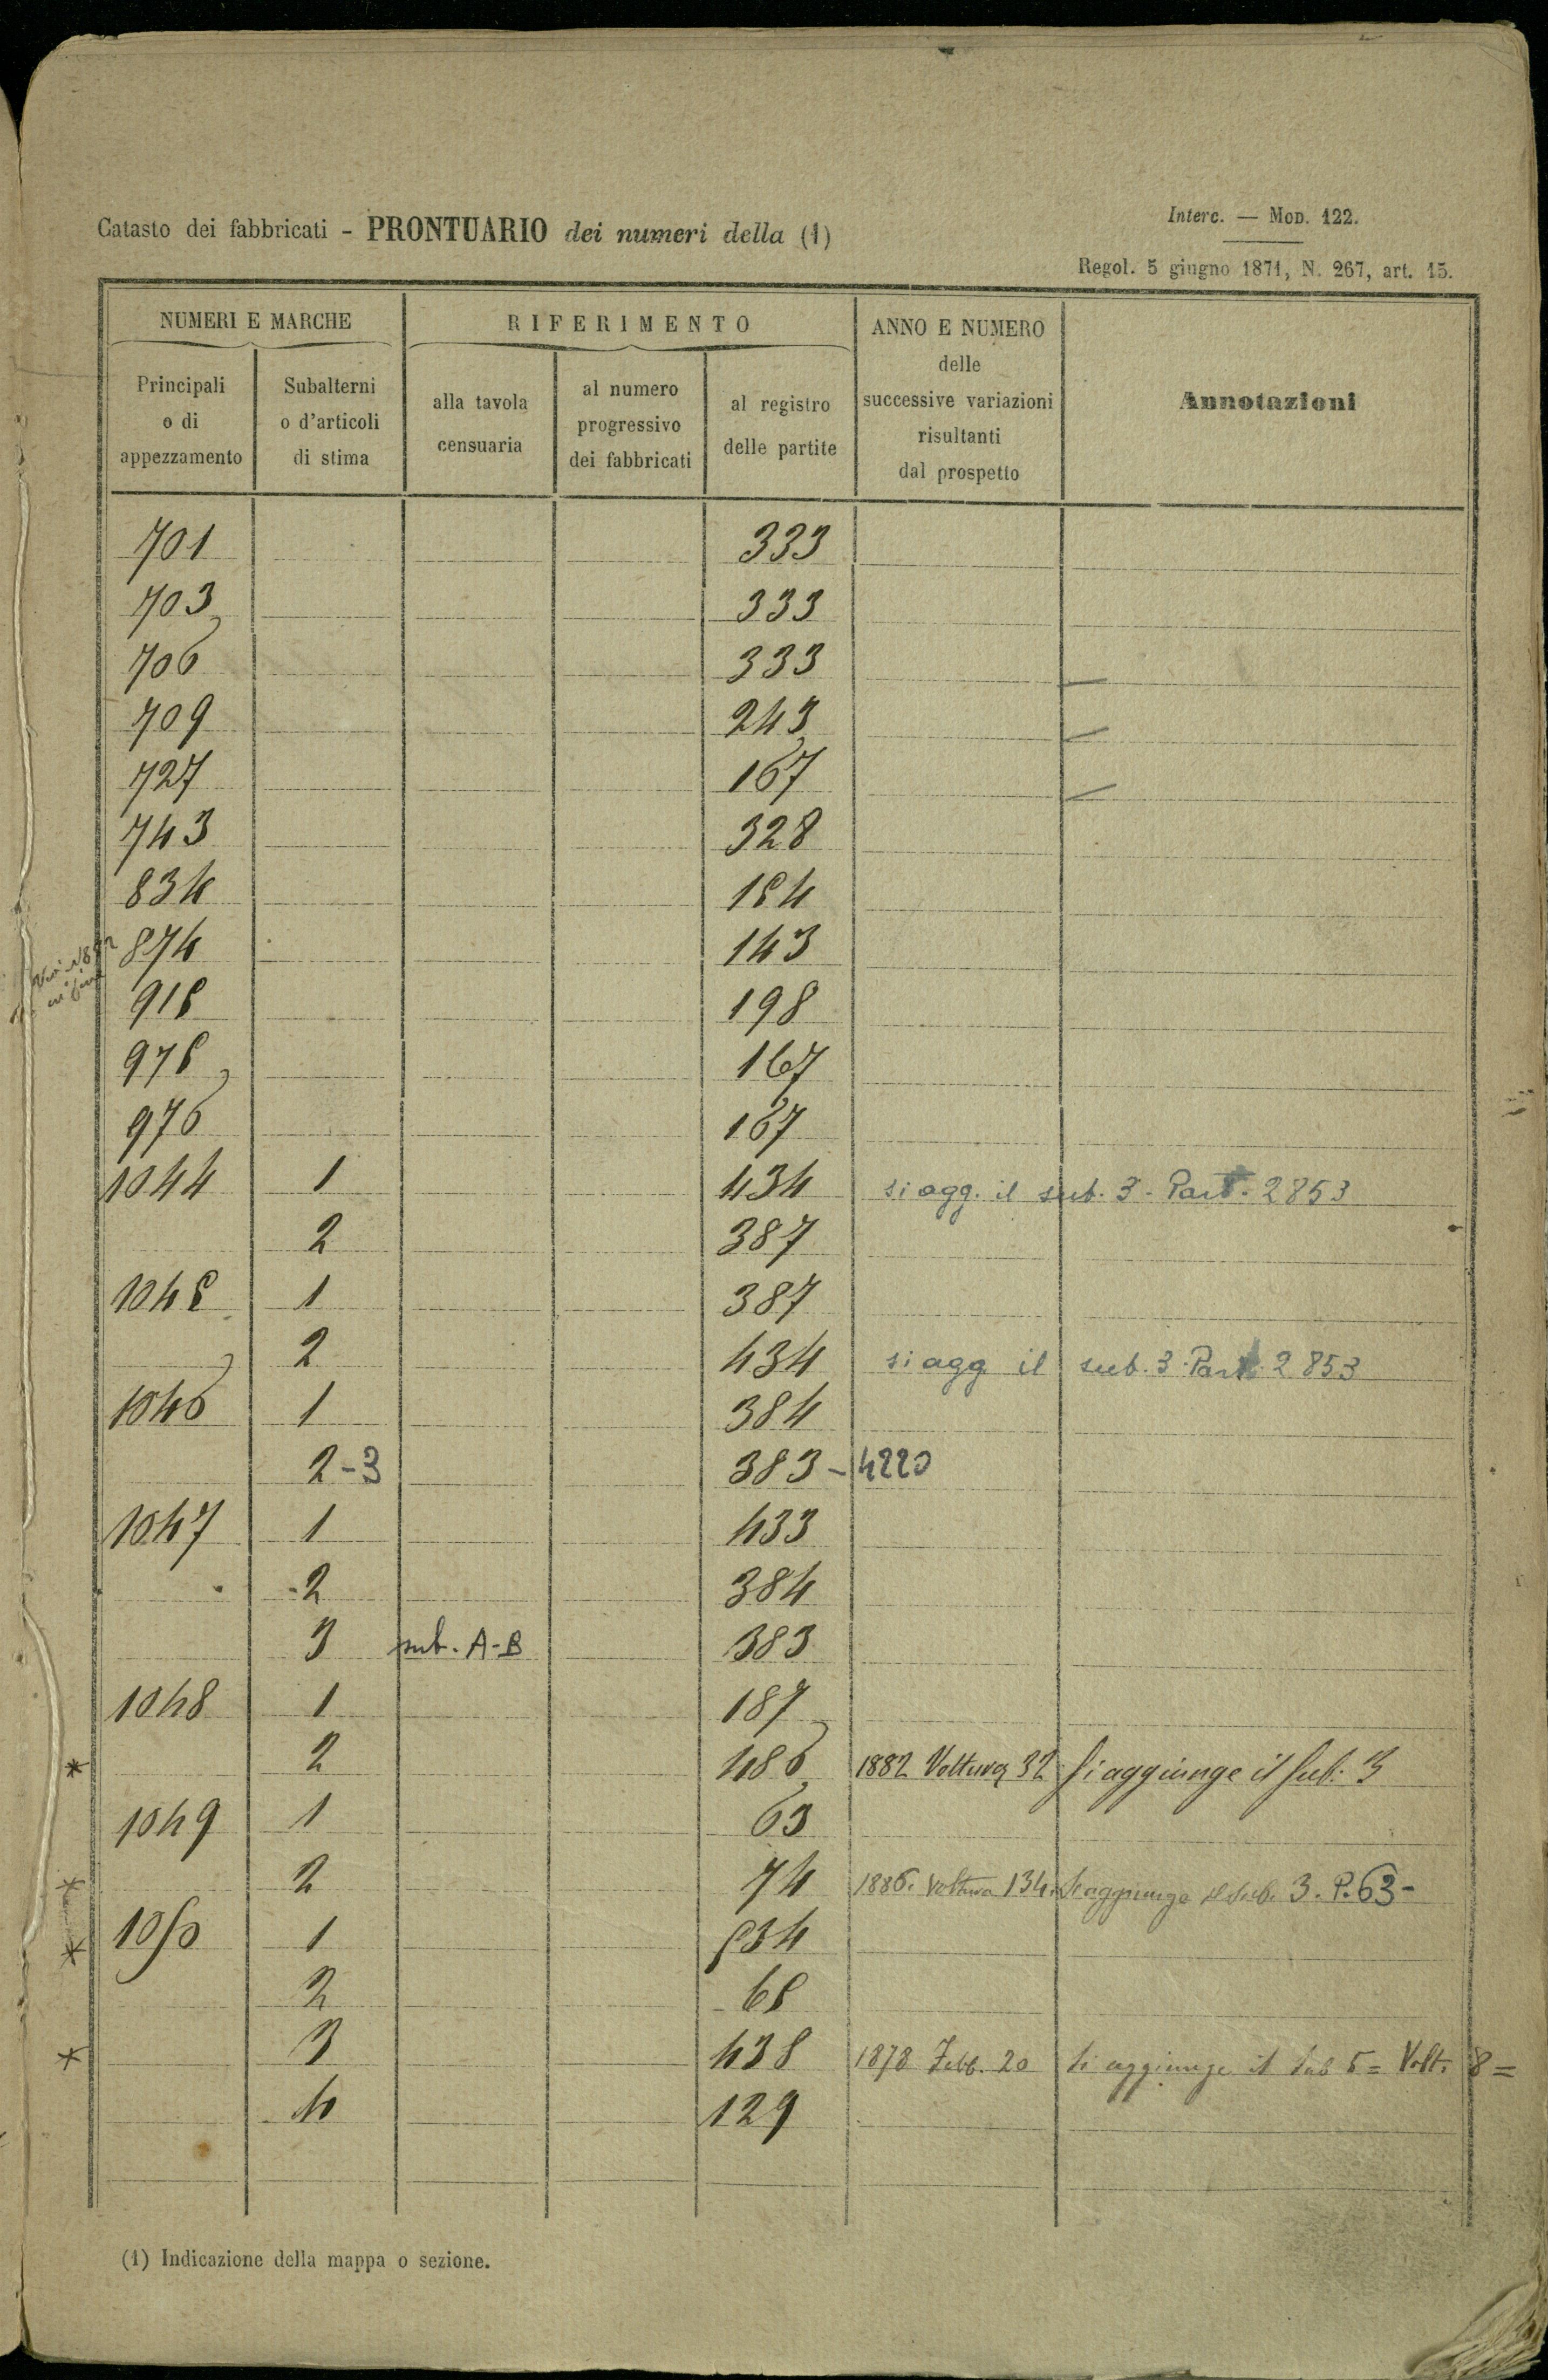 Interc. — Mod. 122.
Catasto dei fabbricati - PRONTUARIO dei numeri della (1)
Regol. 5 giugno 1871, N. 267, art. 15.
NUMERI E MARCHE
RIFERIMENTO
ANNO E NUMERO
delle
successive variazioni
risultanti
dal prospetto
Annotazioni
Principali
o di
appezzamento
Subalterni
o d'articoli
di stima
alla tavola
censuaria
al numero
progressivo
dei fabbricati
al registro
delle partite
701 333
703 333
706 333
709 243
727 167
743 328
834 154
874 143
915 198
975 167
976 167
1044 1 434 si agg. il sub. 3 - Part. 2853
2 387
1045 1 387
2 434 si agg il sub. 3. Part. 2853
1046 1 384
2-3 383 - 4220
1047 1 433
2 384
3 sub. A-B 383
1048 1 187
* 2 486 1882 Voltura 32 Si aggiunge il Sub. 3
1049 1 63
* 2 74 1886. Voltura 134. Si aggiunge il Sub. 3. P. 63-
* 1050 1 534
2 65
* 3 438 1878 Febb. 20 Si aggiunge il Sub 5 = Volt. 8 =
4 129
(1) Indicazione della mappa o sezione.